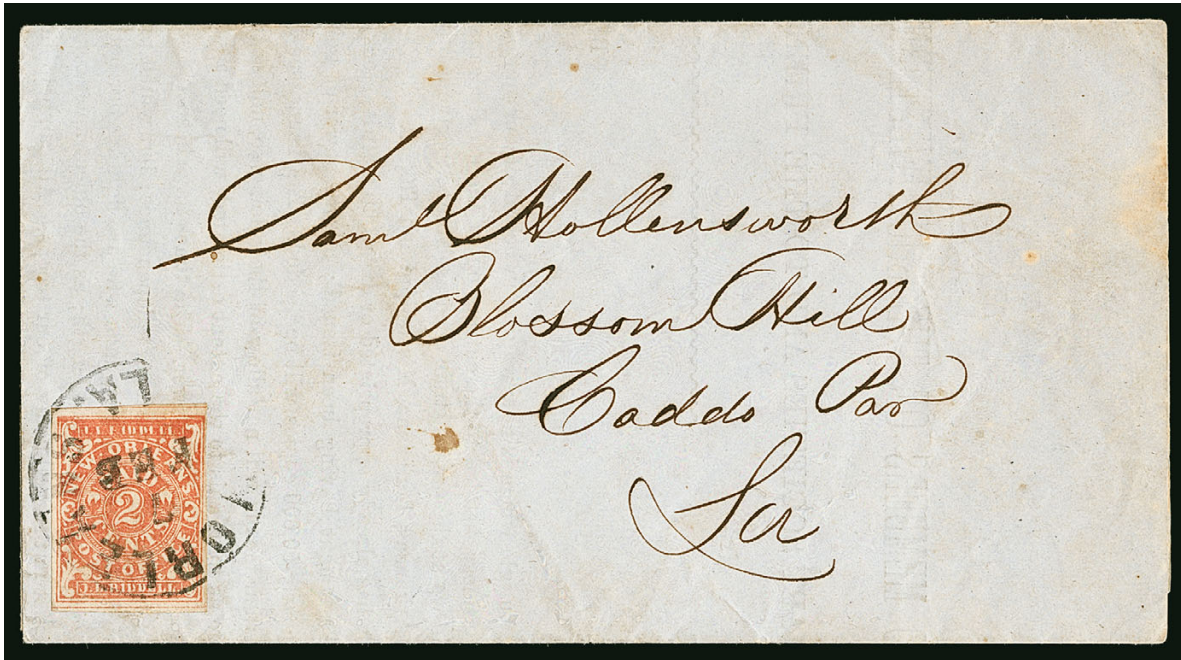 Saml Hollensworth
Blossom Hill
Caddo Par
La
J.L. RIDDELL
NEW ORLEANS
PAID
2
CENTS
POST OFFICE
J.L. RIDDELL
LA
FEB